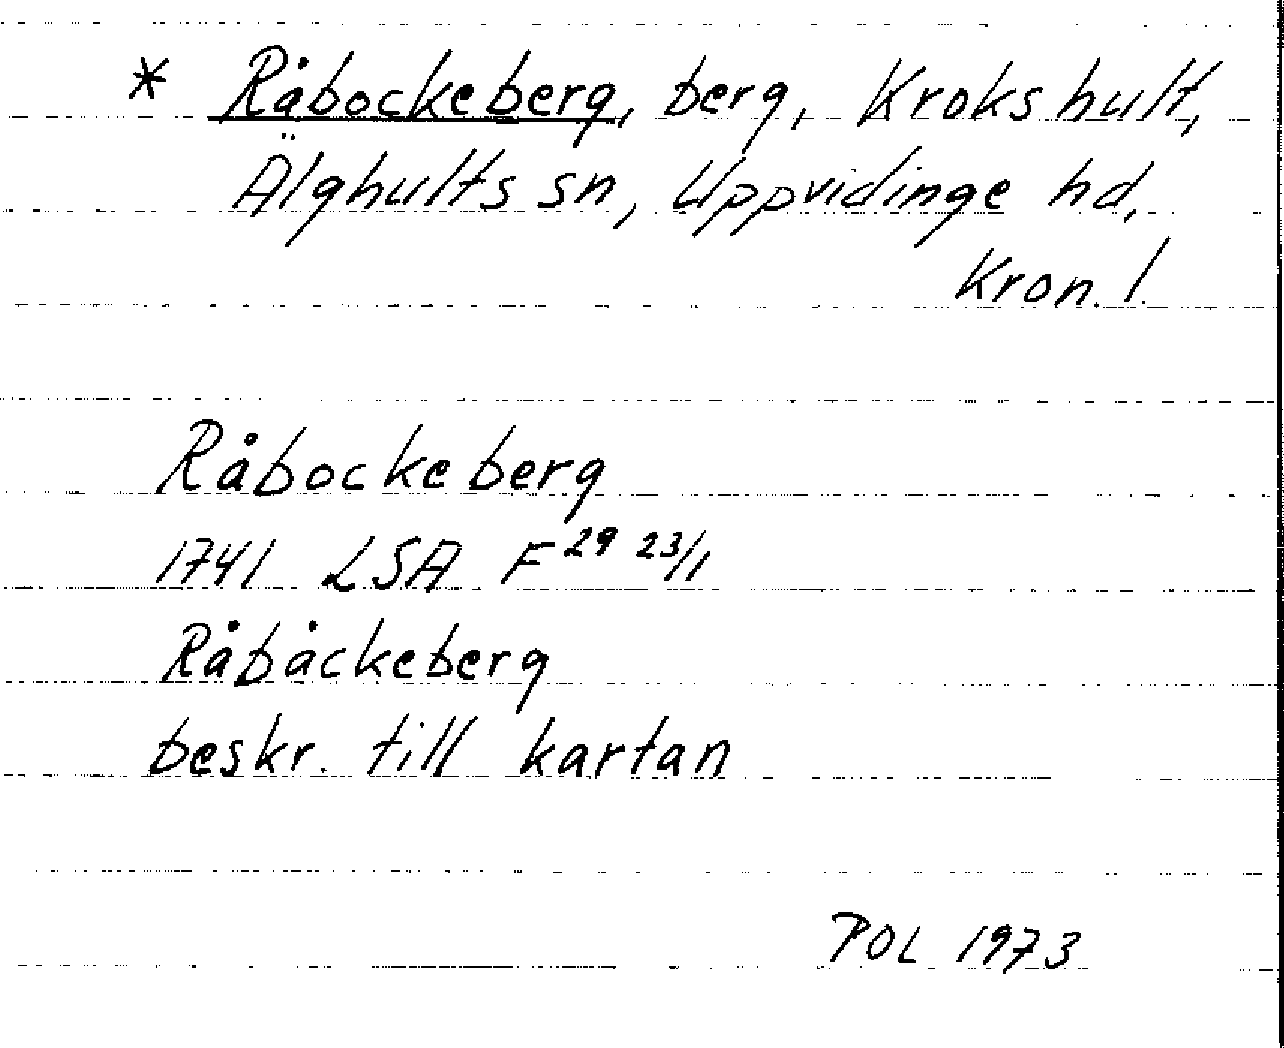 * Råbockeberg, berg, Krokshult,
Älghults sn, Uppvidinge hd,
Kron. l.
Råbockeberg
1741 LSA F 29 23/1
Råbåckeberg
beskr. till kartan
POL 1973